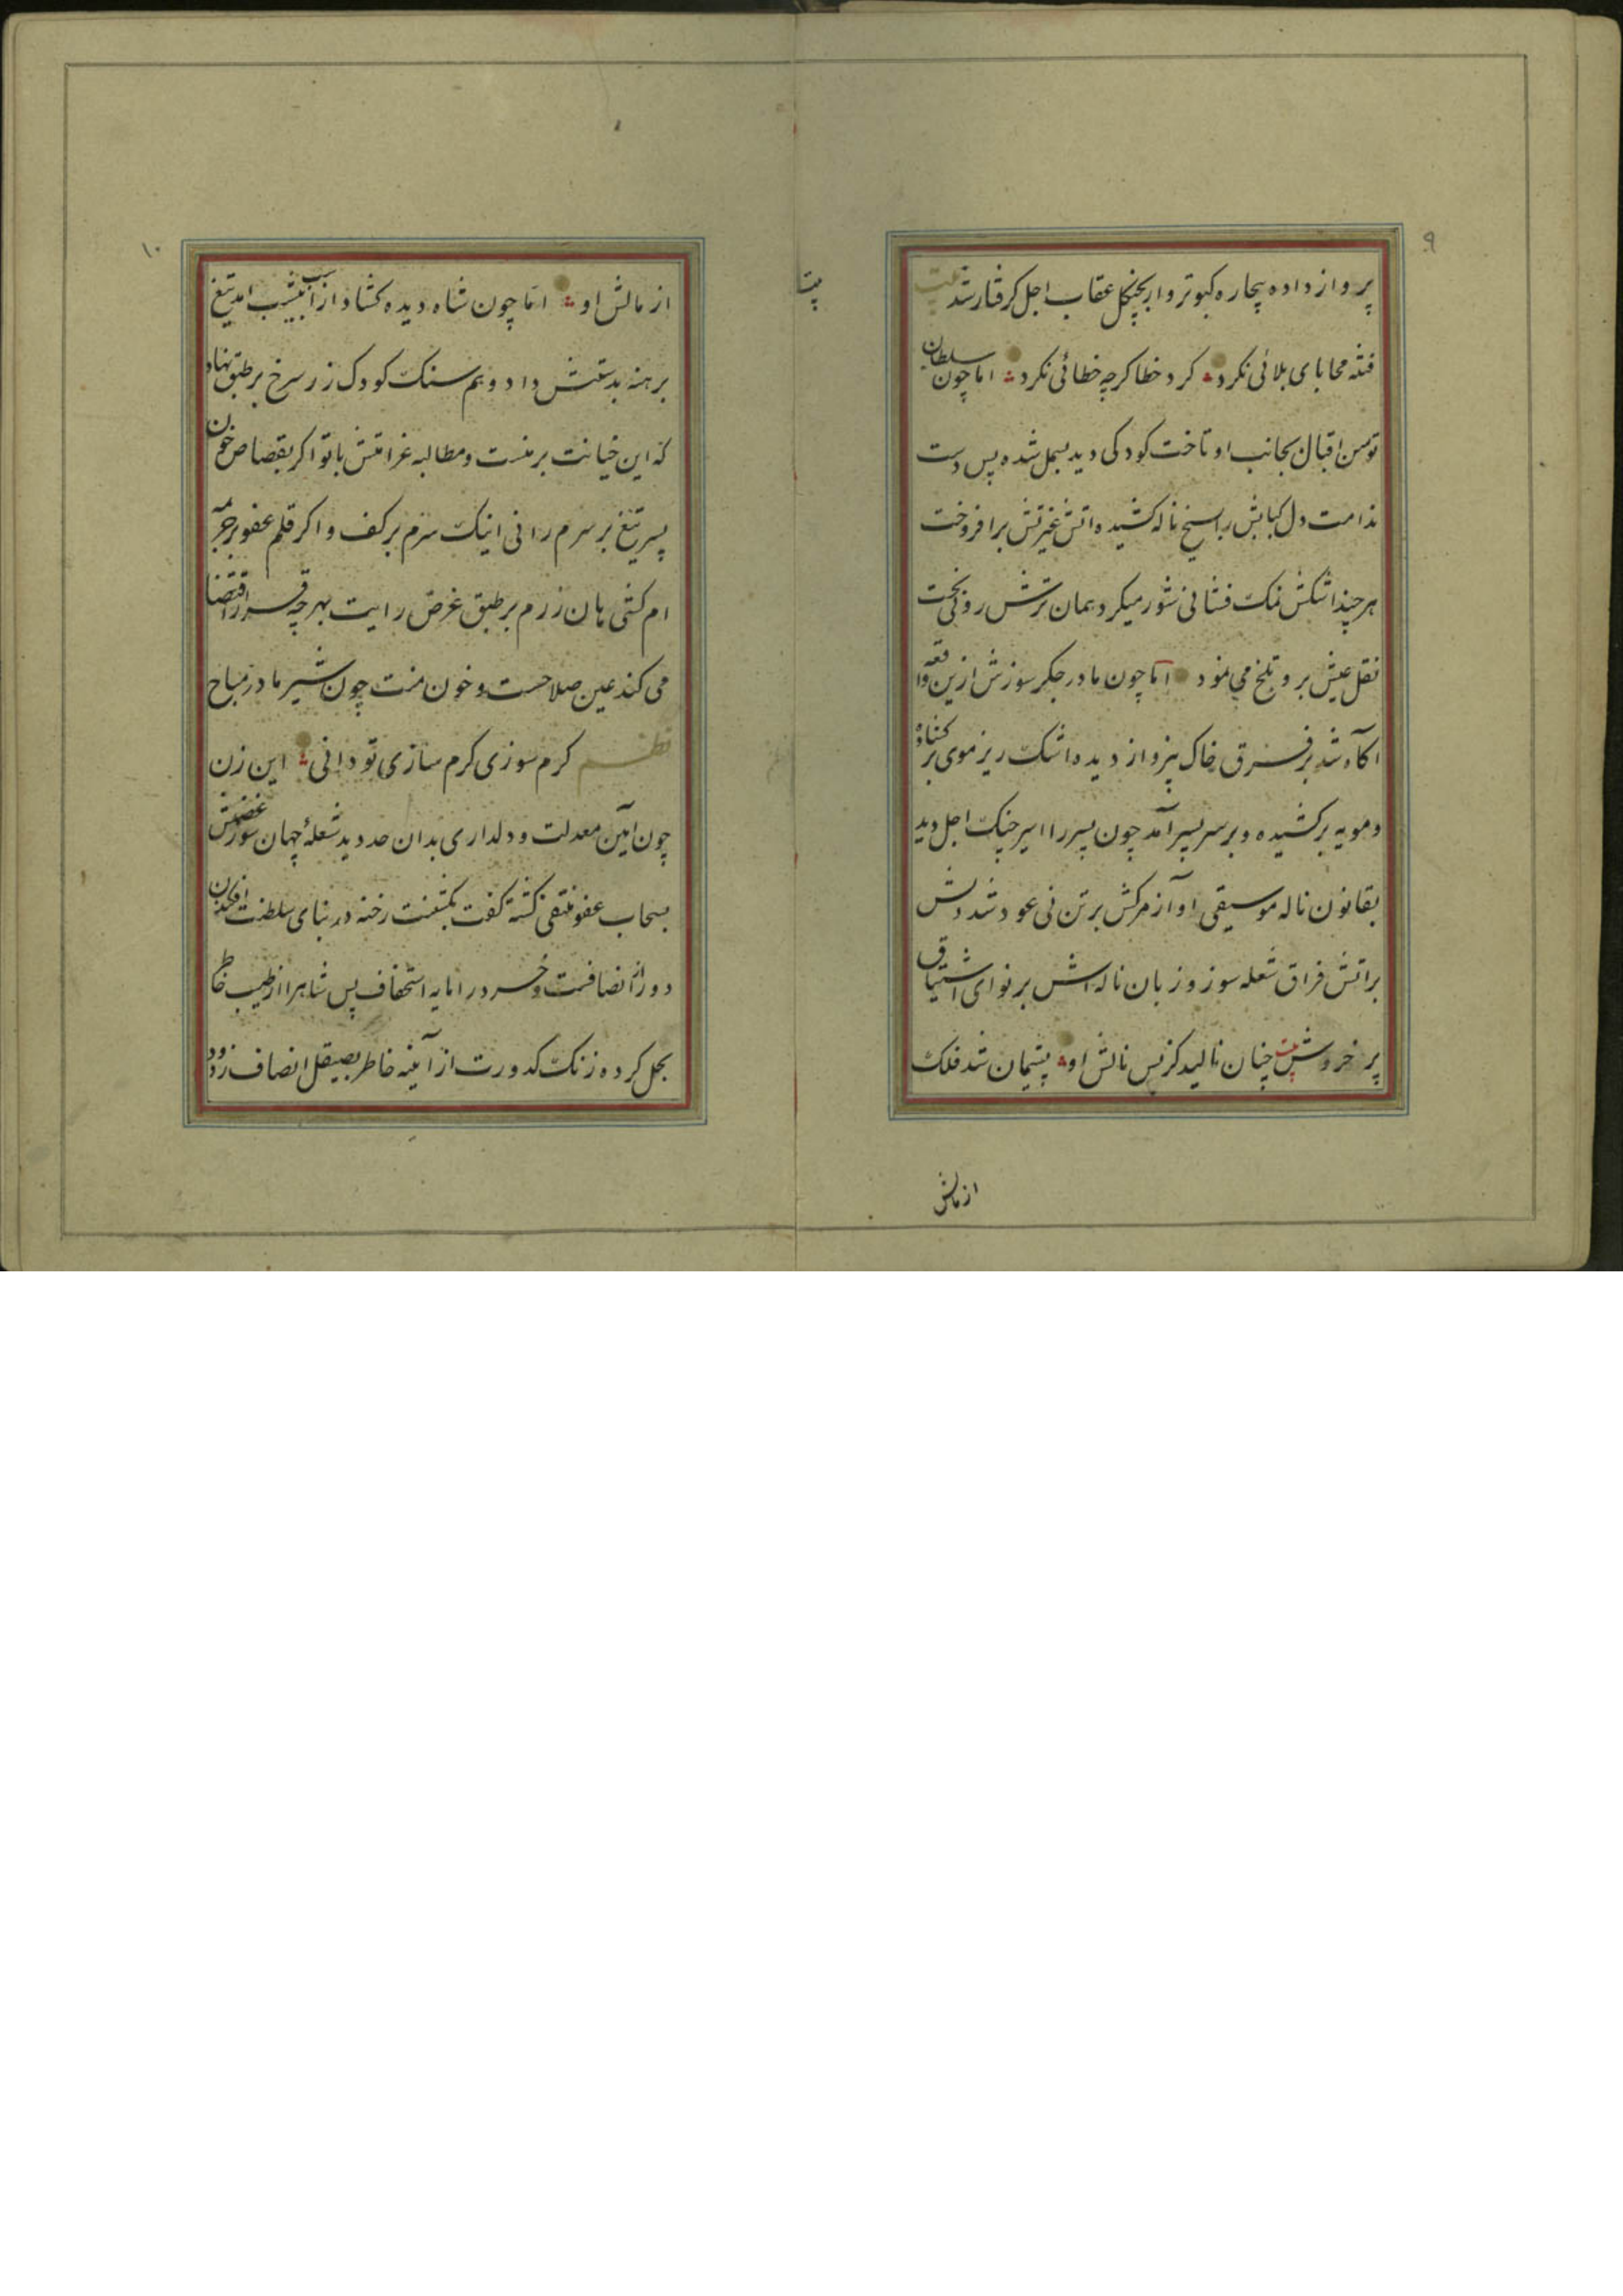 ۹
پرواز داده بیچاره کبوتروار بچنکل عقاب اجل کرفتار شد بیت
فتنه محابای بلائی نکرد کرد خطا کرچه خطائی نکرد اما چون سلطان
توسن اقبال بجانب او تاخت کودکی دید بسمل شده پس دست
ندامت دل کبابش را سیخ ناله کشیده اتش غیرتش برافروخت
هر چند اشکش نمک فشانی شور میکرد همان ترش روئی بخت
نقل عیش برو تلخ می نمود اما چون مادر جکر سوزش ازین واقعه
اکاه شد بر فرق خاک بیز و از دیده اشک ریز موی بر کشاده
و مویه برکشیده و بر سر پسر آمد چون پسر را اسیر چنک اجل دید
بقانون ناله موسیقی او آز مرکش بر تن نی عود شد دلش
براتش فراق شعله سوز و زبان ناله اش بر نوای اشتیاق
پر خروش بیت چنان نالید کز بس نالش او پشیمان شد فلک
از مالش
بیتا
۱۰
از مالش او اما چون شاه دیده کشاد از اسب بشیب امد تیغ
برهنه بدستش داد و هم سنک کودک زر سرخ بر طبق نهاد
که این خیانت بر منست و مطالبه غرامتش با تو اکر بقصاص خون
پسر تیغ بر سرم رانی اینک سرم بر کف و اکر قلم عفو بر جریمه
ام کشی هان زرم بر طبق غرض رایت بهر چه قرار اقتضا
می کند عین صلاحست و خون منت چون شیر مادر مباح
نظم کرم سوزی کرم سازی تو دانی این زن
چون آیین معدلت و دلداری بدان حد دید شعلهٔ جهان سوز غضبش
بسحاب عفو منتفی کشته کفت بکشتنت رخنه در بنای سلطنت افکندن
دور از انصافست و خرد را مایه استخفاف پس شاهرا از طیب خاطر
بحل کرده زنک کدورت از آینه خاطر بصیقل انصاف زدود